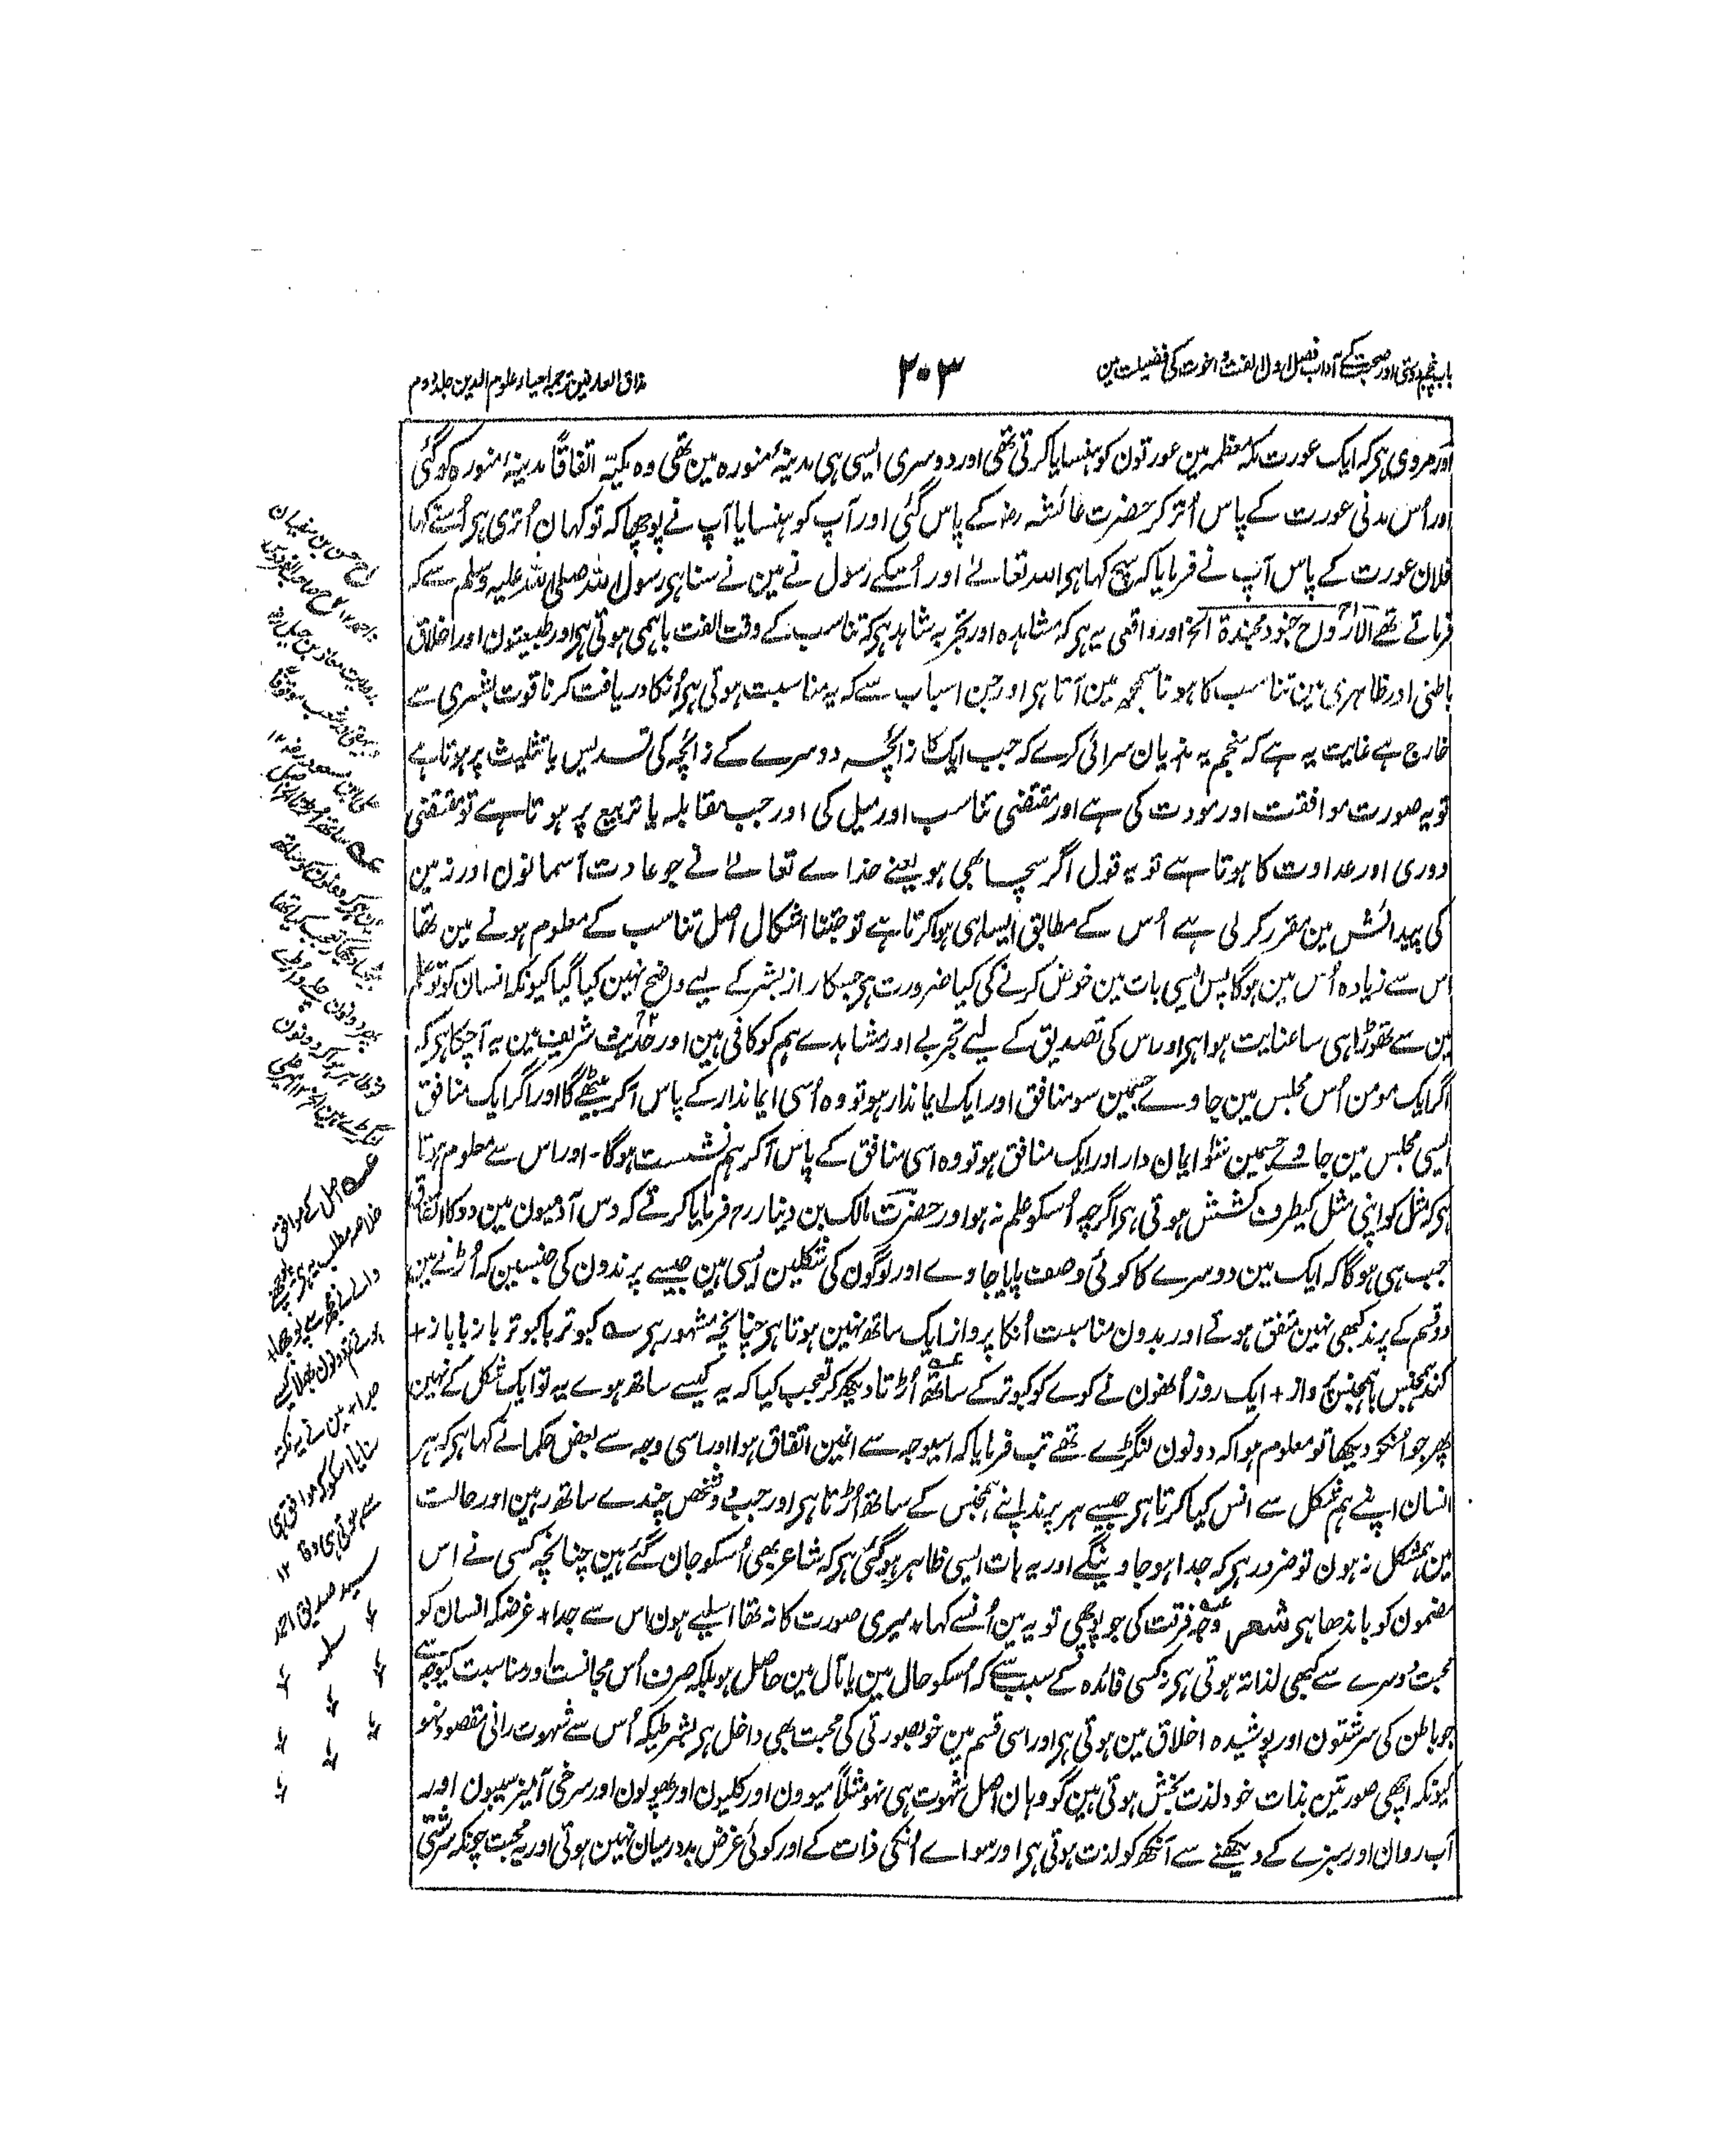 باب پنجم دوستی اور صحبت کے آداب فصل اول الفت و اخوت کی فضیلت مین
۲۰۳
مذاق العارفین ترجمہ احیاء علوم الدین جلد دوم
اور مروی ہی کہ ایک عورت مکہ معظمہ مین عورتون کو ہنسایا کرتی تھی اور دوسری ایسی ہی مدینۂ منورہ مین تھی وہ مکیّہ اتفاقاً مدینۂ منورہ کو گئی
اور اُس مدنی عورت کے پاس اُتر کر حضرت عائشہ رضہ کے پاس گئی اور آپ کو ہنسایا آپ نے پوچھا کہ تو کہان اُتری ہی اُسنے کہا
فلان عورت کے پاس آپ نے فرمایا کہ سچ کہا ہی اللہ تعالےٰ اور اُسکے رسول نے مین نے سنا ہی رسول اللہ صلی اللہ علیہ وسلم سے کہ
فرماتے تھے الارواح جنود مجندۃ الخ اور واقعی یہ ہی کہ مشاہدہ اور تجربہ شاہد ہی کہ تناسب کے وقت الفت باہمی ہوتی ہی اور طبیعتون اور اخلاق
باطنی اور ظاہری مین تناسب کا ہونا سمجھ مین آتا ہی اور جن اسباب سے کہ یہ مناسبت ہوتی ہی اُنکا دریافت کرنا قوت بشری سے
خارج ہے غایت یہ ہے کہ منجم یہ ہذیان سرائی کرے کہ جب ایک کا زائچہ دوسرے کے زائچہ کی تسدیس یا تثلیث پر ہوتا ہے
تو یہ صورت موافقت اور مودت کی ہے اور مقتضی تناسب اور میل کی اور جب مقابلہ یا تربیع پر ہوتا ہے تو مقتضی
دوری اور عداوت کا ہوتا ہے تو یہ قول اگر سچا بھی ہو یعنے خداے تعالےٰ نے جو عادت آسمانون اور زمین
کی پیدائش مین مقرر کر لی ہے اُس کے مطابق ایسا ہی ہوا کرتا ہے تو جتنا اشکال اصل تناسب کے معلوم ہونے مین تھا
اس سے زیادہ اُس مین ہوگا پس ایسی بات مین خوض کرنے کی کیا ضرورت ہی جسکا راز بشر کے لیے واضح نہین کیا گیا کیونکہ انسان کو تو علم
مین سے تھوڑا ہی سا عنایت ہوا ہی اور اس کی تصدیق کے لیے تجربے اور مشاہدے ہم کو کافی ہین اور حدیث شریف مین یہ آچکا ہی کہ
اگر ایک مومن اُس مجلس مین جاوے جسمین سو منافق اور ایک ایماندار ہو تو وہ اُسی ایماندار کے پاس آکر بیٹھے گا اور اگر ایک منافق
ایسی مجلس مین جاوے جسمین سو ایمان دار اور ایک منافق ہو تو وہ اسی منافق کے پاس آکر ہم نشست ہوگا - اور اس سے معلوم ہوتا
ہی کہ مثل کو اپنی مثل کیطرف کشش ہوتی ہی اگرچہ اُسکو علم نہ ہو اور حضرت مالک بن دینار رح فرمایا کرتے کہ دس آدمیون مین دو کا اتفاق
جب ہی ہوگا کہ ایک مین دوسرے کا کوئی وصف پایا جاوے اور لوگون کی شکلین ایسی ہین جیسے پرندون کی جنسین کہ اُڑنے مین
دو قسم کے پرند کبھی نہین متفق ہوتے اور بدون مناسبت اُنکا پرواز ایک ساتھ نہین ہوتا ہی چنانچہ مشہور ہی ؎ کبوتر با کبوتر باز با باز +
کند ہمجنس با ہمجنس پرواز + ایک روز اُنھون نے کوے کو کبوتر کے ساتھ اُڑتا دیکھ کر تعجب کیا کہ یہ کیسے ساتھ ہوے یہ تو ایک شکل کے نہین
پھر جو اُنکو دیکھا تو معلوم ہوا کہ دونون لنگڑے تھے تب فرمایا کہ اسیوجہ سے انمین اتفاق ہوا اور اسی وجہ سے بعض حکما نے کہا ہی کہ ہر
انسان اپنے ہم شکل سے انس کیا کرتا ہی جیسے ہر پرند اپنے ہمجنس کے ساتھ اُڑتا ہی اور جب دو شخص چندے ساتھ رہین اور حالت
مین ہمشکل نہون تو ضرور ہی کہ جدا ہو جاوینگے اور یہ بات ایسی ظاہر ہوگئی ہی کہ شاعر بھی اُسکو جان گئے ہین چنانچہ کسی نے اس
مضمون کو باندھا ہی شعر وجہ فرقت کی جو پوچھی تو یہ مین اُنسے کہا + میری صورت کا نہ تھا اسلیے ہون اس سے جدا + غرضکہ انسان کو
محبت دوسرے سے کبھی لذاتہ ہوتی ہی نہ کسی فائدہ کے سبب سے کہ اُسکو حال مین یا مآل مین حاصل ہو بلکہ صرف اُس مجانست اور مناسبت کیوجہ سے
جو باطن کی سرشتون اور پوشیدہ اخلاق مین ہوتی ہی اور اسی قسم مین خوبصورتی کی محبت بھی داخل ہی بشرطیکہ اُس سے شہوت رانی مقصود نہو
کیونکہ اچھی صورتین بذات خود لذت بخش ہوتی ہین گو وہان اصل شہوت ہی نہو مثلاً میوون اور کلیون اور پھولون اور سرخی آمیز سیبون اور
آب روان اور سبزے کے دیکھنے سے آنکھ کو لذت ہوتی ہی اور سواے اُنکی ذات کے اور کوئی غرض بد درمیان نہین ہوتی اور یہ محبت چونکہ سرشتی
حسن بن سفیان
بروایت معاذ بن جبل
پھر دونون
ظاہر ہوا کہ دونون
اصل کے موافق
خلاصہ مطلب
مین نے یہ نکتہ
سنایا اسکو کہ موافق ہی
سے ہوتی ہی وفا ۱۲
سید صدیق احمد
سلمہ